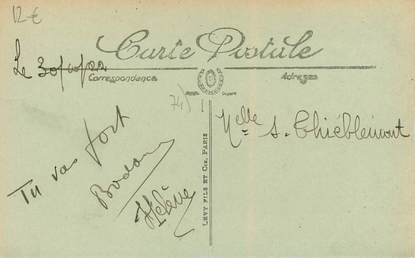 12 €
Carte Postale
Le 30/10/22
Correspondance
Adresse
74)
Melle S. Thiéblemont
Tu vas fort
Hélène
LEVY FILS ET Cie, PARIS